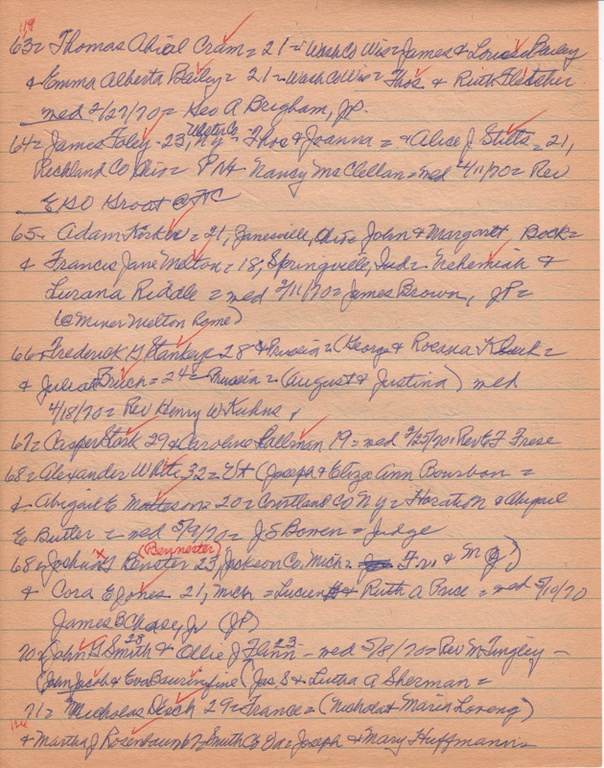 119
63= Thomas Abial Cram = 21 = Wash Co Wis = James & Louisa Bailey
& Emma Alberta Bailey = 21 = Wash Co Wis = Thos & Ruth Fletcher
med 2/27/70 = Geo A Brigham, JP.
64= James Foley - 23, Ulster Co, NY = Thos & Joanna = & Alice J Stitts = 21,
Richland Co Ohio = & Nancy McClellan = med 4/11/70 = Rev
65= Adam = 21, Zanesville, Ohio = John & Margaret Bock =
& Francis Jane Melton = 18, Springville, Ind = Nehemiah &
Lurana Riddle = med 2/11/70 = James Brown, JP =
(@ Miner Melton Rsme)
66 Frederick G Stankeye 28 & Prussia = (George & Rosana =
& Bruch = 24 = Prussia = (August & Justina) med
4/18/70 = Rev Henry W Kuhns,
67= Casper Stork 29 & Caroline Pallman 19 = med 2/25/70 = Rev E F Frese
68= Alexander White 32 = Vt (Joseph & Eliza Ann Bourbon =
& Abigail E Matteson = 20 = Cortland Co NY = Horation & Abigail
E Butler = med 5/9/70 = J S Bowen = Judge
(Bennerter)
68 Joshua 23, Jackson Co, Mich = & M
& Cora E Jones 21, Mich = Lucien & Ruth A Price = med 5/10/70
James B Chase, Jr (JP)
70 John G Smith 28 & Ollie J Flinn 23 - med 5/8/70 = Rev M Tingley -
(John Jacob & Eva Bauringfine) (Jas. S & Lutha A Sherman =
71= Nicholas Desch 29 = France = (Nicholas & Maria Loreng)
& Martha J Rosenbaum Smith Co Va = Joseph & Mary Huffman